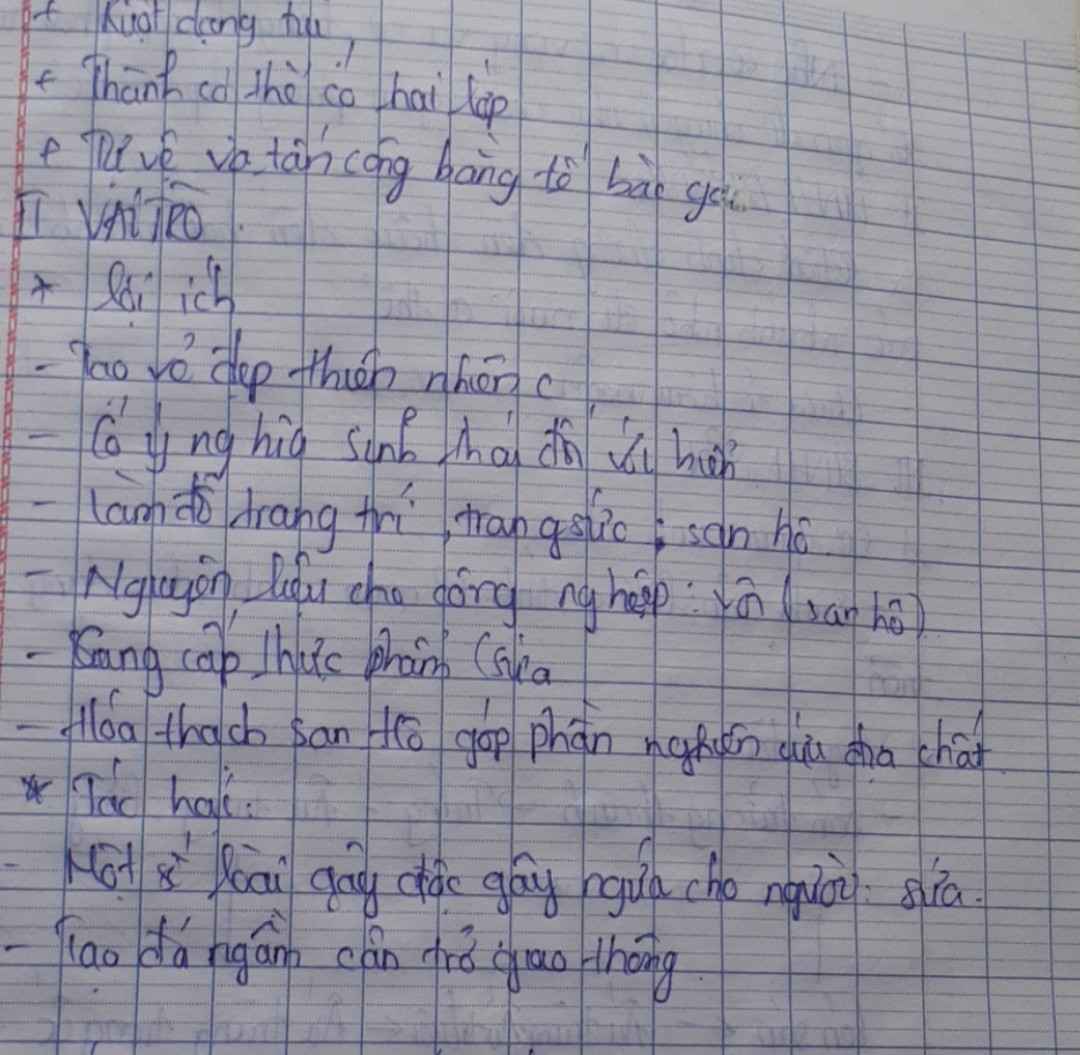 + Ruột dạng túi
+ Thành cơ thể có hai lớp
+ Tự vệ và tấn công bằng tế bào gai
II VAI TRÒ
* Lợi ích
- Tạo vẻ đẹp thiên nhiên
- Có ý nghĩa sinh thái đối với biển
- Làm đồ trang trí, trang sức: san hô
- Nguyên liệu cho công nghiệp: vôi (san hô)
- Cung cấp thực phẩm (sứa
- Hóa thạch san hô góp phần nghiên cứu địa chất
* Tác hại:
- Một số loài gây độc gây ngứa cho người: sứa.
- Tạo đá ngầm cản trở giao thông